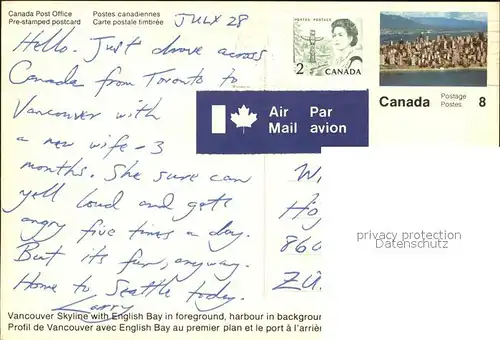 Canada Post Office
Pre-stamped postcard
Postes canadiennes
Carte postale timbrée
JULY 28
Hello. Just drove across
Canada from Toronto to
Vancouver with
a new wife - 3
months. She sure can
yell loud and gets
angry five times a day.
But its fun, anyway.
Home to Seattle today.
Larry
POSTES POSTAGE
2
CANADA
Canada
Postage
Postes
8
Air
Mail
Par
avion
W
Ho
860
ZÜ
privacy protection
Datenschutz
Vancouver Skyline with English Bay in foreground, harbour in backgroun
Profil de Vancouver avec English Bay au premier plan et le port à l'arriè